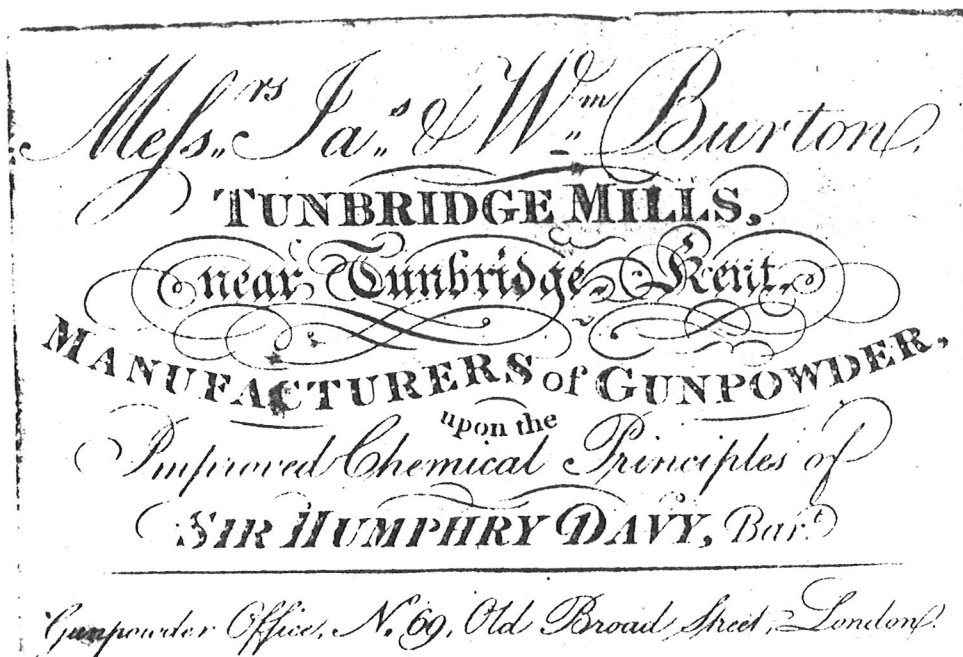 Meſs.rs Ja.s & W.m Burton,
TUNBRIDGE MILLS,
near Tunbridge, Kent.
MANUFACTURERS of GUNPOWDER,
upon the
Improved Chemical Principles of
SIR HUMPHRY DAVY, Bar.t
Gunpowder Office, N.69, Old Broad Street, London.